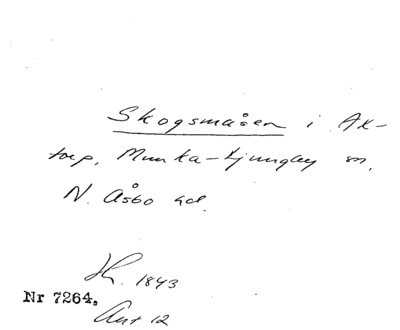 Skogsmåsen i Ax-
torp, Munka-Ljungby sn,
N. Åsbo hd.
Hr. 1843
Nr 7264.
Ant 12